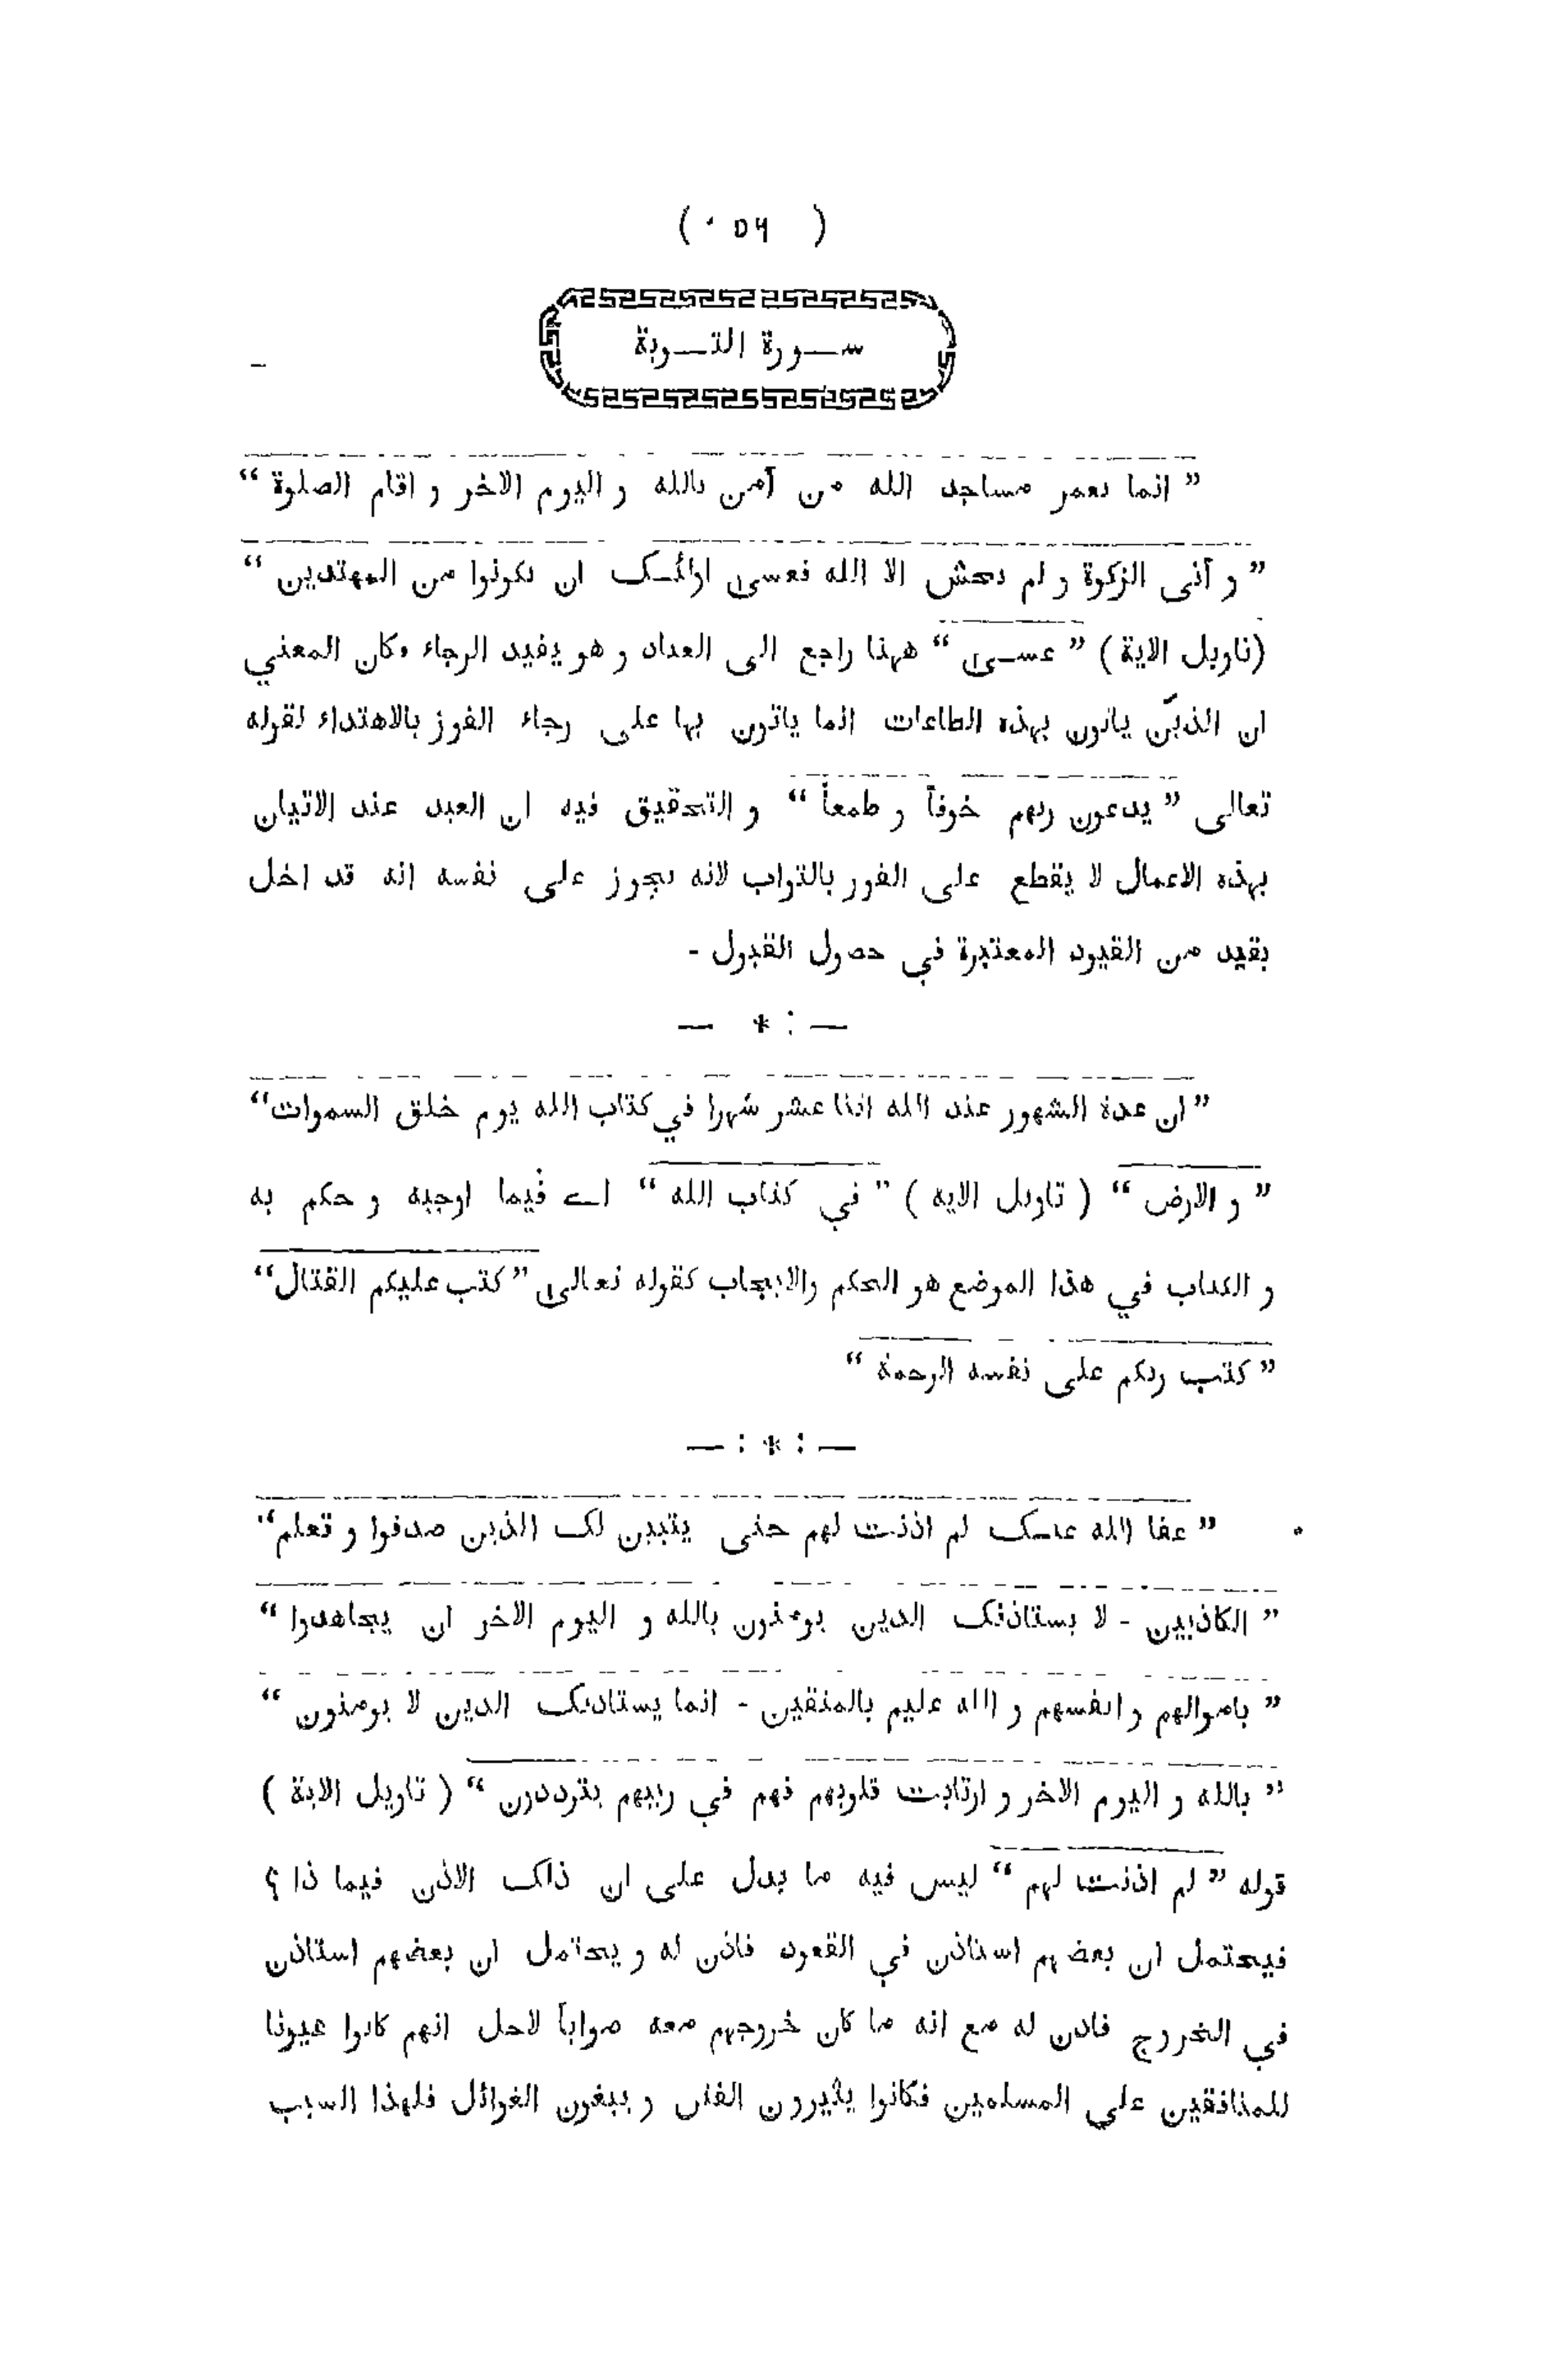 ( ٥٦ )
ســورة التــوبة
” انما يعمر مساجد الله من آمن بالله و اليوم الاخر و اقام الصلوة “
” و آتى الزكوة و لم يخش الا الله فعسى اولئسک ان يكونوا من المهتدين “
(تاويل الاية) ” عسى “ ههنا راجع الى العباد و هو يفيد الرجاء وكان المعني
ان الذين ياتون بهذه الطاعات انما ياتون بها على رجاء الفوز بالاهتداء لقوله
تعالى ” يدعون ربهم خوفاً و طمعاً “ و التحقيق فيه ان العبد عند الاتيان
بهذه الاعمال لا يقطع على الفوز بالثواب لانه يجوز على نفسه انه قد اخل
بقيد من القيود المعتبرة في حصول القبول -
— : * —
” ان عدة الشهور عند الله اثنا عشر شهرا في كتاب الله يوم خلق السموات “
” و الارض “ ( تاويل الايه ) ” في كتاب الله “ اے فيما اوجبه و حكم به
و الكتاب في هذا الموضع هو الحكم والايجاب كقوله تعالى ” كتب عليكم القتال “
” كتب ربكم على نفسه الرحمة “
— : * : —
” عفا الله عنک لم اذنت لهم حتى يتبين لک الذين صدقوا و تعلم “
” الكاذبين - لا يستاذنک الذين يومنون بالله و اليوم الاخر ان يجاهدوا “
” باموالهم و انفسهم و الله عليم بالمتقين - انما يستاذنک الذين لا يومنون “
” بالله و اليوم الاخر و ارتابت قلوبهم فهم في ريبهم يترددون “ ( تاويل الاية )
قوله ” لم اذنت لهم “ ليس فيه ما يدل على ان ذلک الاذن فيما ذا ؟
فيحتمل ان بعضهم استاذن في القعود فاذن له و يحتمل ان بعضهم استاذن
في الخروج فاذن له مع انه ما كان خروجهم معه صواباً لاجل انهم كانوا عيونا
للمنافقين على المسلمين فكانوا يثيرون الفتن و يبغون الغوائل فلهذا السبب